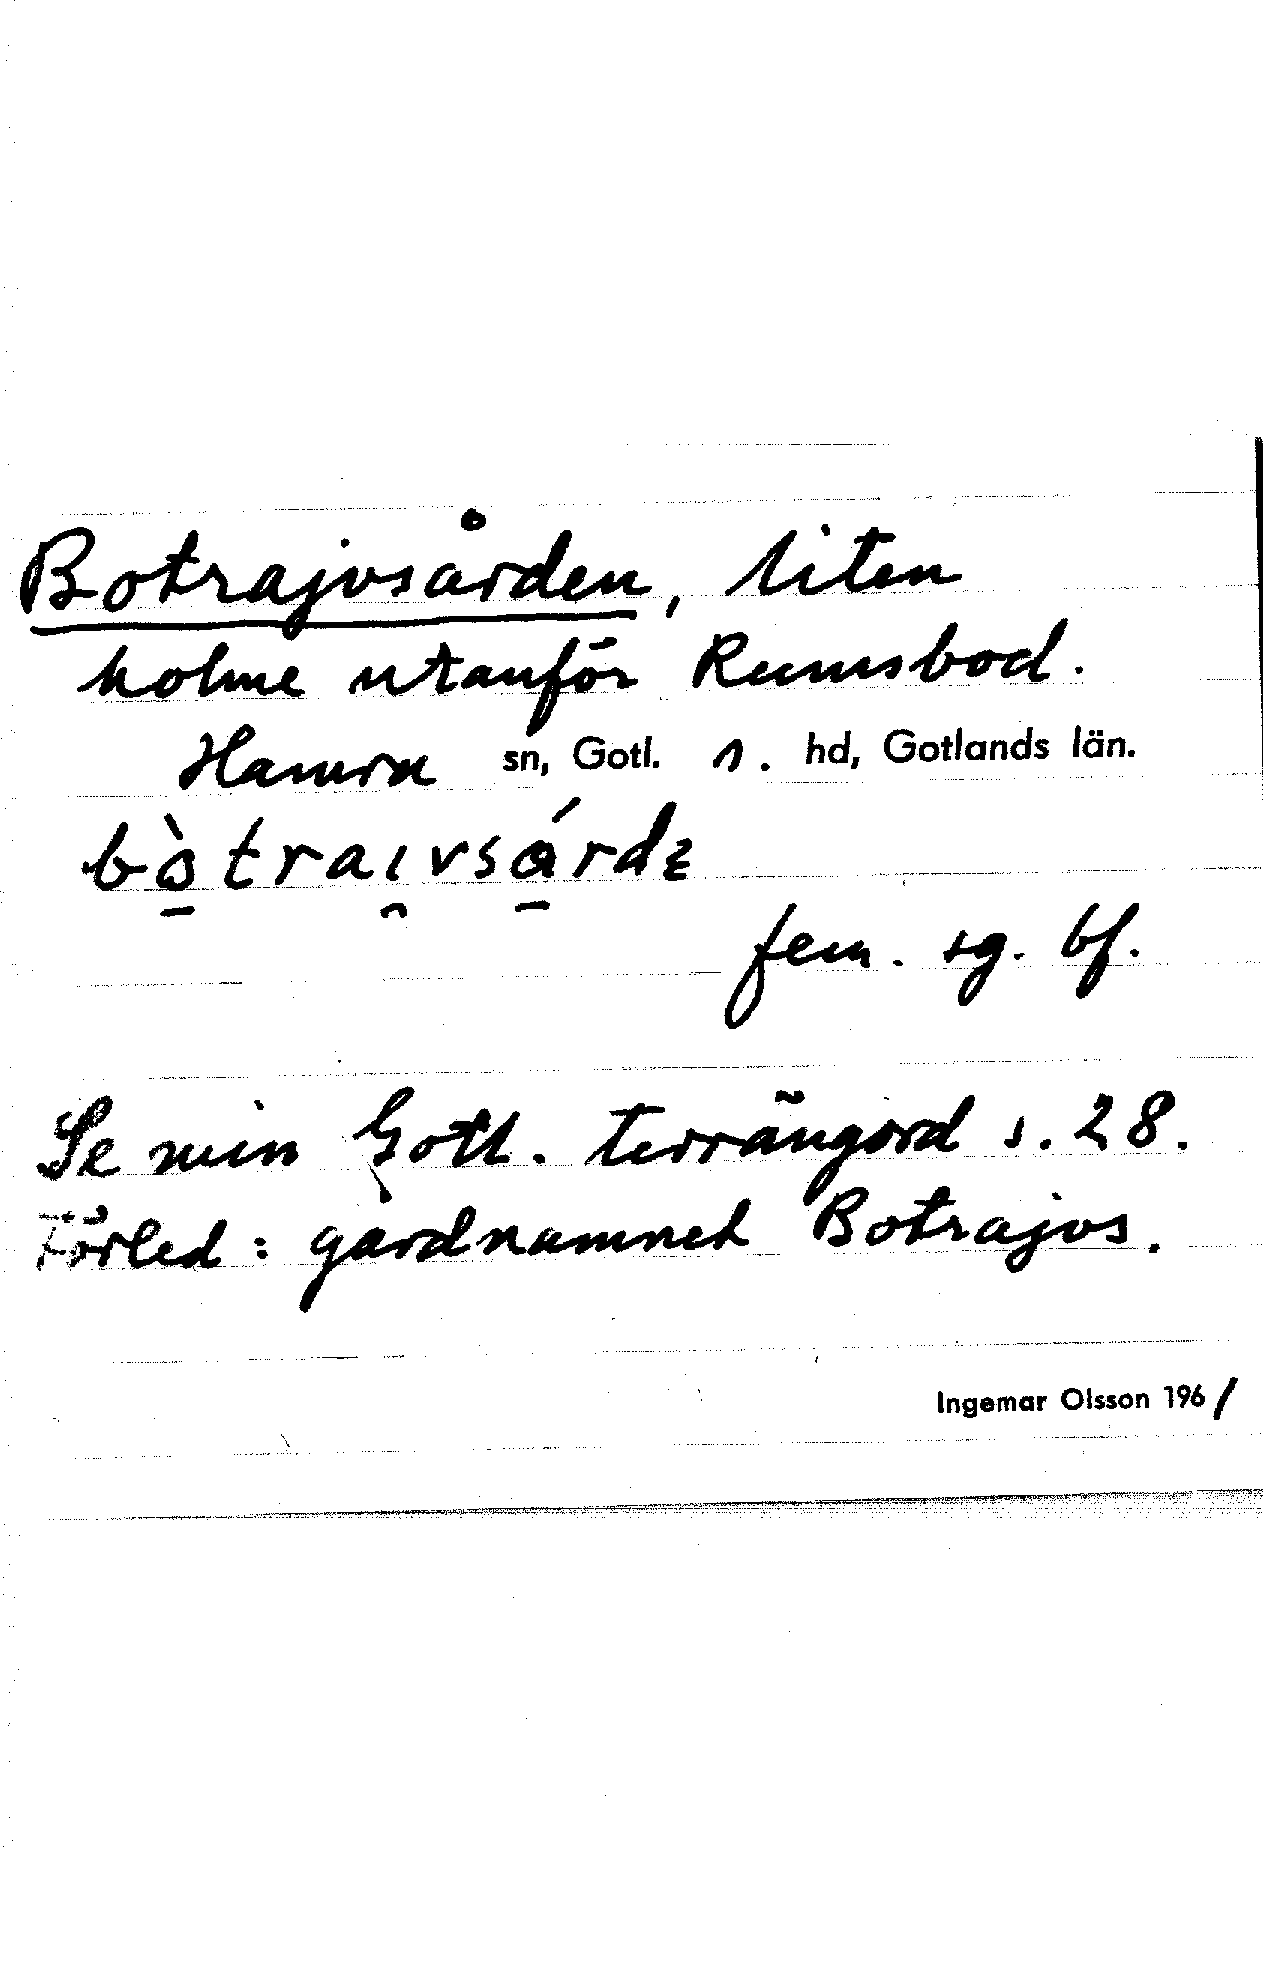 Botrajvsården, liten
holme utanför Rumsbod.
Hamra sn, Gotl. s. hd, Gotlands län.
bò̱traı̯vsá̱rdɛ
fem. sg. bf.
Se min Gotl. terrängord s. 28.
Förled: gårdnamnet Botrajvs.
Ingemar Olsson 1961